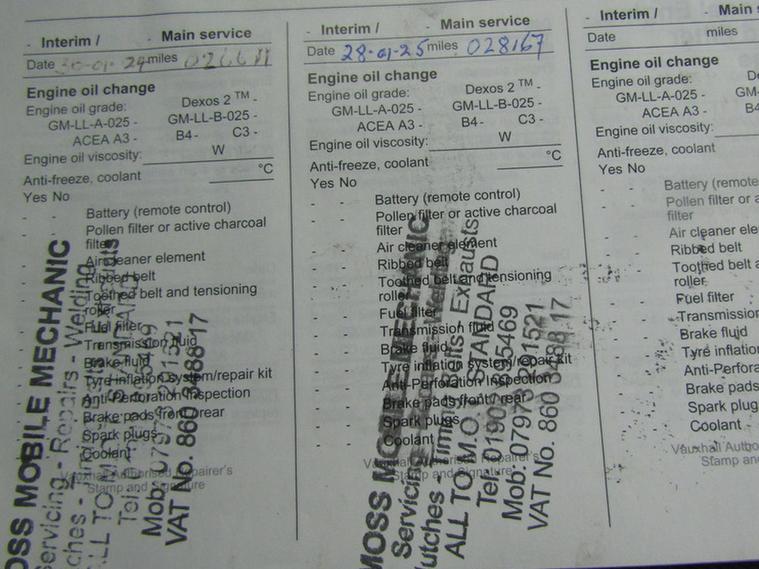 - Interim / - Main service
Date 30-01-24 miles
Engine oil change
Engine oil grade: Dexos 2 ™ -
GM-LL-A-025 - GM-LL-B-025 -
ACEA A3 - B4 - C3 -
Engine oil viscosity: W
Anti-freeze, coolant °C
Yes No
- - Battery (remote control)
- - Pollen filter or active charcoal
filter
- - Air cleaner element
- - Ribbed belt
- - Toothed belt and tensioning
roller
- - Fuel filter
- - Transmission fluid
- - Brake fluid
- - Tyre inflation system/repair kit
- - Anti-Perforation Inspection
- - Brake pads front, rear
- - Spark plugs
- - Coolant
Vauxhall Authorised Repairer's
Stamp and Signature
OSS MOBILE MECHANIC
ervicing - Repairs - Welding
ches -
ALL TO M.O.T. STANDARD
Tel:
Mob:
VAT No. 860 3488 17
- Interim / - Main service
Date 28-01-25 miles 028167
Engine oil change
Engine oil grade: Dexos 2 ™ -
GM-LL-A-025 - GM-LL-B-025 -
ACEA A3 - B4 - C3 -
Engine oil viscosity: W
Anti-freeze, coolant °C
Yes No
- - Battery (remote control)
- - Pollen filter or active charcoal
filter
- - Air cleaner element
- - Ribbed belt
- - Toothed belt and tensioning
roller
- - Fuel filter
- - Transmission fluid
- - Brake fluid
- - Tyre inflation system/repair kit
- - Anti-Perforation Inspection
- - Brake pads front, rear
- - Spark plugs
- - Coolant
Vauxhall Authorised Repairer's
Stamp and Signature
MOSS MOBILE MECHANIC
Servicing - - Welding
utches - Timing Belts - Exhausts
ALL TO M.O.T. STANDARD
Tel:
Mob:
VAT No. 860 3488 17
- Interim / - Main
Date miles
Engine oil change
Engine oil grade: De
GM-LL-A-025 - GM-
ACEA A3 - B4
Engine oil viscosity:
Anti-freeze, coolant
Yes No
- - Battery (remote
- - Pollen filter or
filter
Air cleaner
Ribbed belt
Toothed belt a
roller
Fuel filter
Transmission
Brake fluid
Tyre inflation
Anti-Perfora
Brake pads
Spark plug
Coolant
Vauxhall Autho
Stamp an